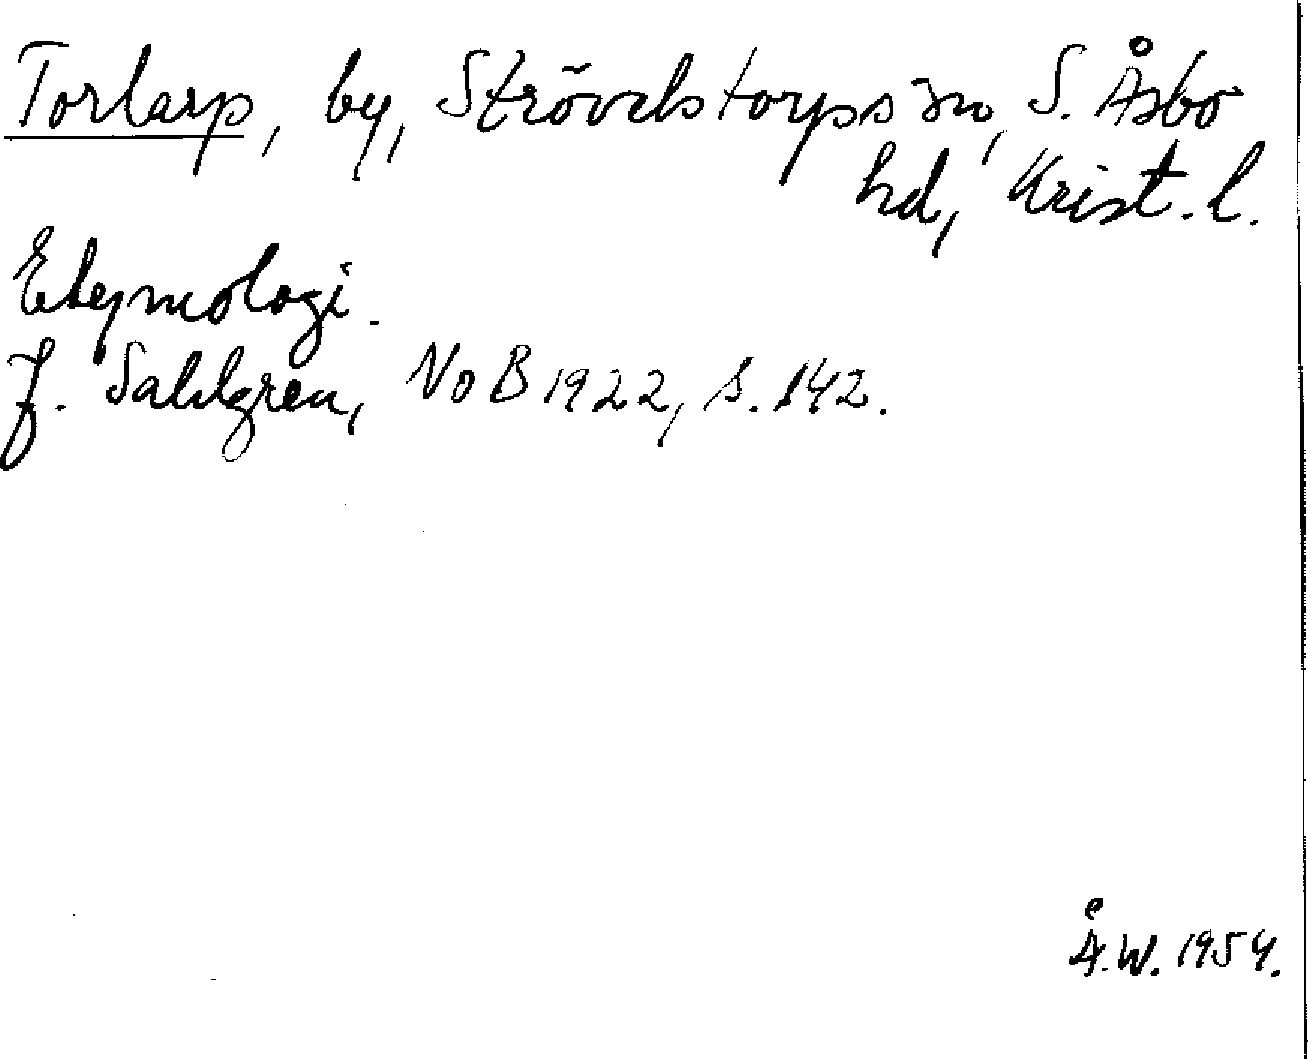 Torlarp, by, Strövelstorps sn, S. Åsbo
hd, Krist. l.
Etymologi.
J. Sahlgren, NoB 1922, s. 142.
Å.W. 1954.